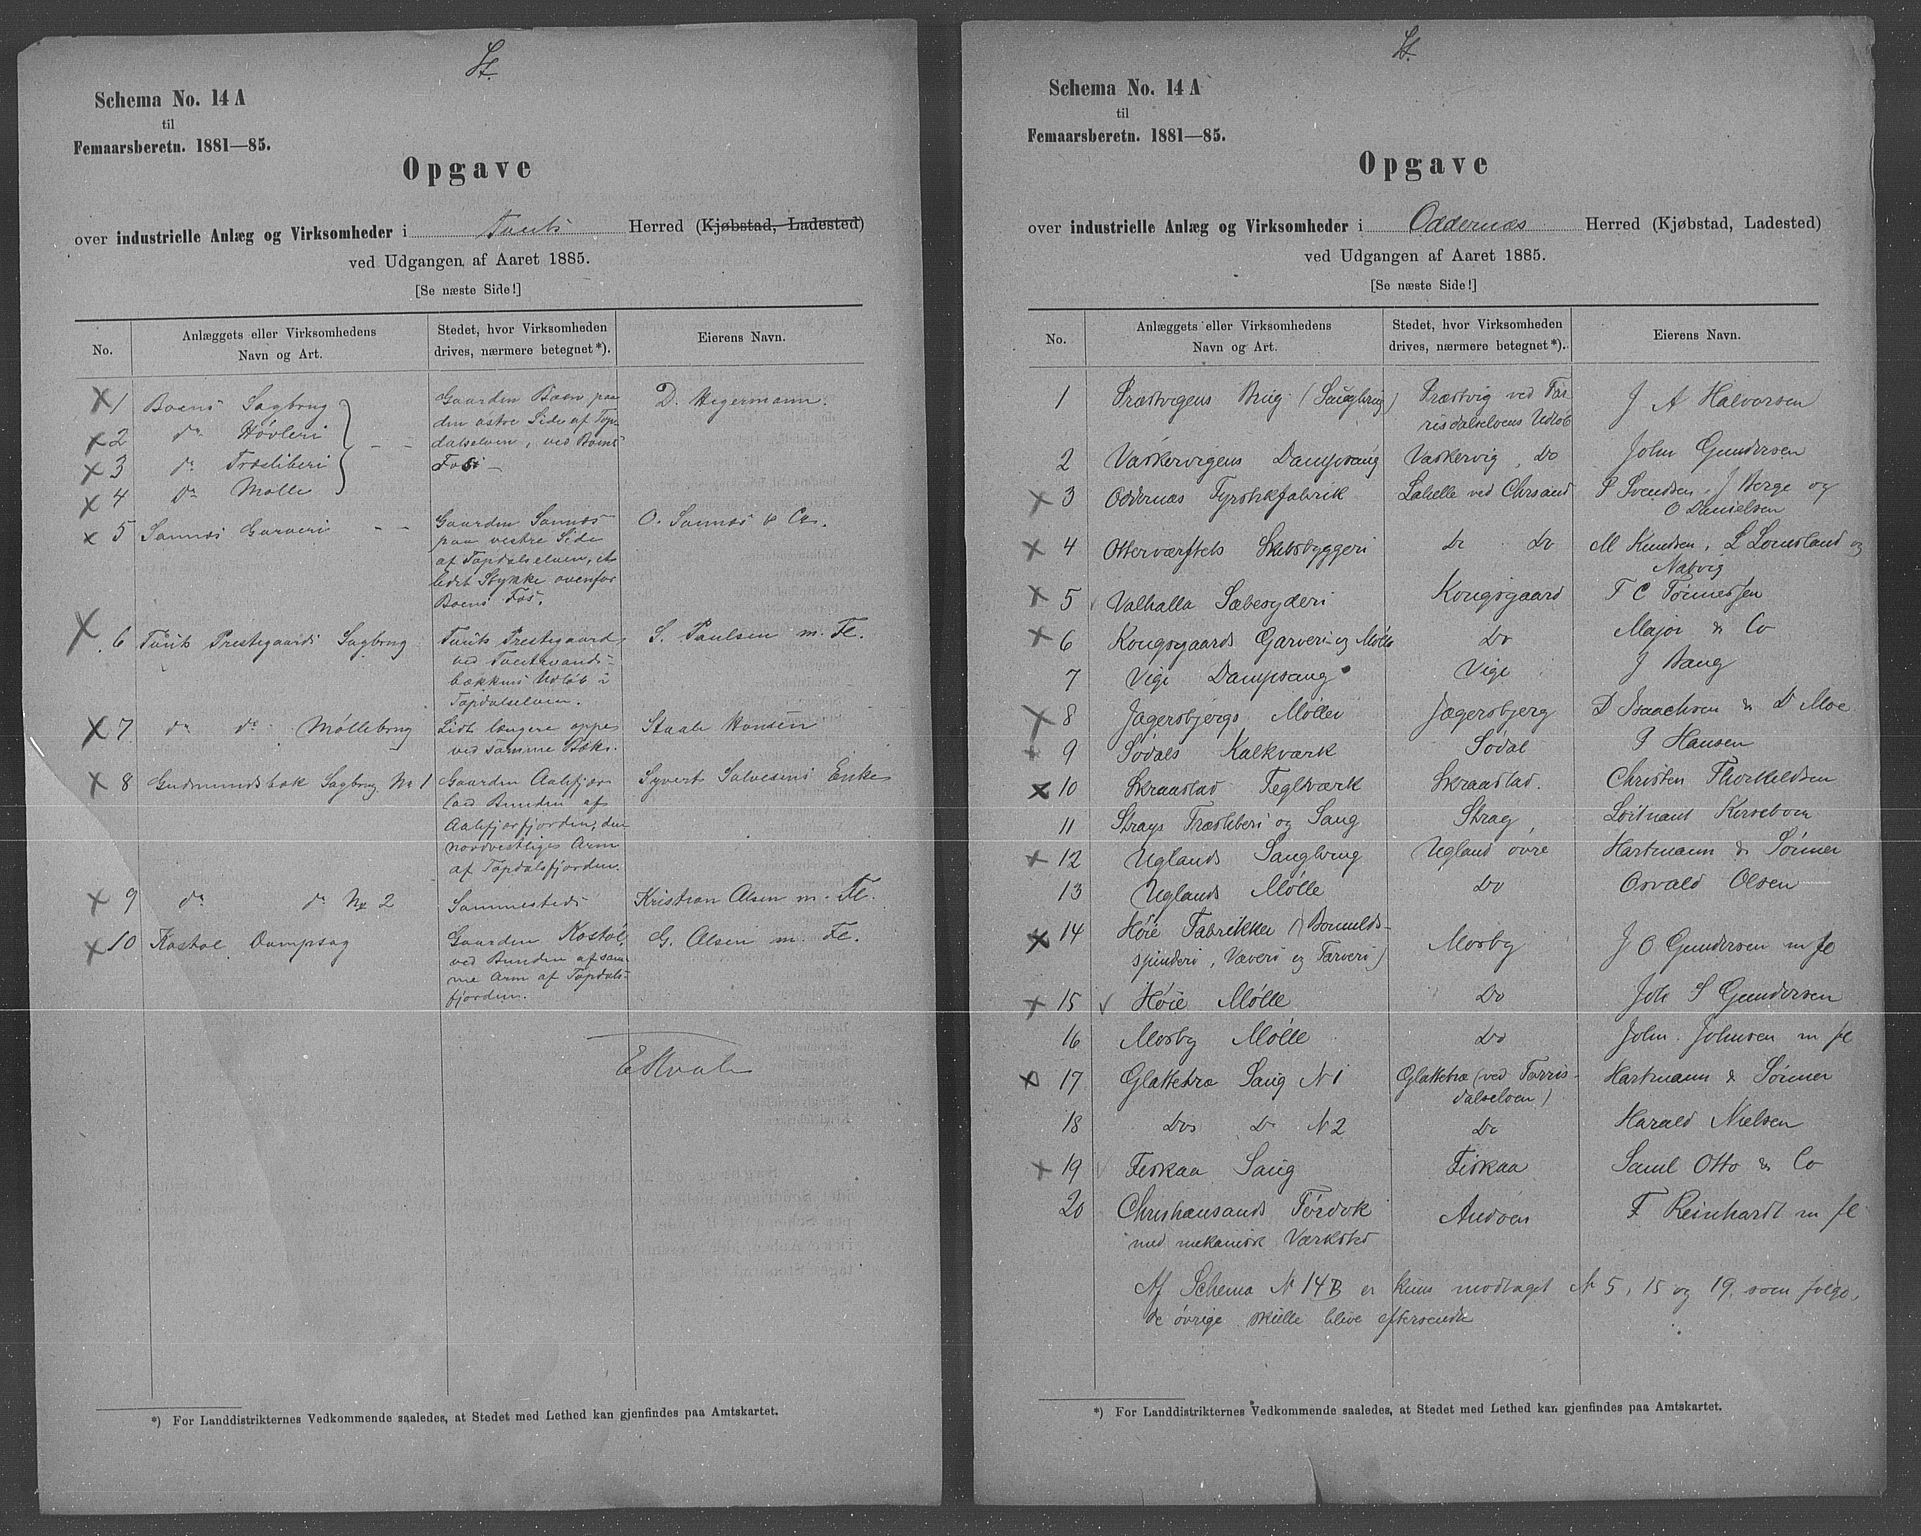 St.
Schema No. 14 A
til
Femaarsberetn. 1881—85.
Opgave
over industrielle Anlæg og Virksomheder i Tveits Herred (Kjøbstad, Ladested)
ved Udgangen af Aaret 1885.
[Se næste Side!]
No.
Anlæggets eller Virksomhedens
Navn og Art.
Stedet, hvor Virksomheden
drives, nærmere betegnet*).
Eierens Navn.
1 Boens Sagbrug
2 do Høvleri
3 do Træsliberi
4 do Mølle
Gaarden Boen paa
den østre Side af Top-
dalselven, ved Boens
Fos. —
D. Hegermann.
5 Sannæs Garveri
Gaarden Sannæs
paa vestre Side
af Topdalselven, et
lidet Stykke ovenfor
Boens Fos.
O. Sannæs & Co.
6 Tveits Prestegaards Sagbrug
Tveits Prestegaard
ved Tveitevands-
bækkens Udløb i
Topdalselven.
S. Paulsen m. Fl.
7 do do Møllebrug
Lidt længere oppe
ved samme Bæk.
Staale Hansen
8 Gudmundsbæk Sagbrug No 1
Gaarden Aalefjær
ved Bunden af
Aalefjærfjorden, den
nordvestliges Arm
af Topdalsfjorden.
Syvert Salvesens Enke
9 do do No 2
Sammesteds
Kristian Olsen m. Fl.
10 Kostøl Dampsag
Gaarden Kostøl,
ved Bunden af sam-
me Arm af Topdals-
fjorden.
G. Olsen m. Fl.
St.
Schema No. 14 A
til
Femaarsberetn. 1881—85.
Opgave
over industrielle Anlæg og Virksomheder i Oddernæs Herred (Kjøbstad, Ladested)
ved Udgangen af Aaret 1885.
[Se næste Side!]
No.
Anlæggets eller Virksomhedens
Navn og Art.
Stedet, hvor Virksomheden
drives, nærmere betegnet*).
Eierens Navn.
1 Præstvigens Brug (Saugbrug) Præstvig ved Tor- J A Halvorsen
risdalselvens Udløb
2 Vaskervigens Dampsaug Vaskervig, Do John Gundersen
3 Oddernæs Fyrstikfabrik Lahelle ved Chrsand P Svendsen, J Berge og
O Danielsen
4 Otterværftets Skibsbyggeri Do Do M Knudsen, L Lomsland og
Natvig
5 Valhalla Sæbesyderi Kongsgaard T C Tønnessen
6 Kongsgaards Garveri og Mølle Do Major & Co
7 Vige Dampsaug Vige J Bang
8 Jægersbjergs Møller Jægersbjerg D Isaachsen & D Moe
9 Sødals Kalkværk Sødal P Hansen
10 Skraastad Teglværk Skraastad. Christen Thorkeldsen
11 Strays Træsliberi og Saug Stray Løitnant Kierseboom
12 Uglands Saugbrug Ugland øvre Hartmann & Sønner
13 Uglands Mølle Do Osvald Olsen
14 Høie Fabrikker (Bomulds- Mosby J O Gundersen m fl
spinderi, Væveri og Farveri)
15 Høie Mølle Do Joh S Gundersen
16 Mosby Mølle Do John Johnsen m fl
17 Glattetræ Saug N 1 Glattetræ (ved Torris- Hartmann & Sønner
dalselven)
18 Dos Do N 2 Do Harald Nielsen
19 Fiskaa Saug Fiskaa Saml Otto & Co
20 Christiansands Tørdok Andøen F Reinhardt m fl
med mekanisk Værksted
Af Schema No 14B er kuns modtaget No 5, 15 og 19, som følge,
de øvrige skulle blive eftersendte
*) For Landdistrikternes Vedkommende saaledes, at Stedet med Lethed kan gjenfindes paa Amtskartet.
*) For Landdistrikternes Vedkommende saaledes, at Stedet med Lethed kan gjenfindes paa Amtskartet.